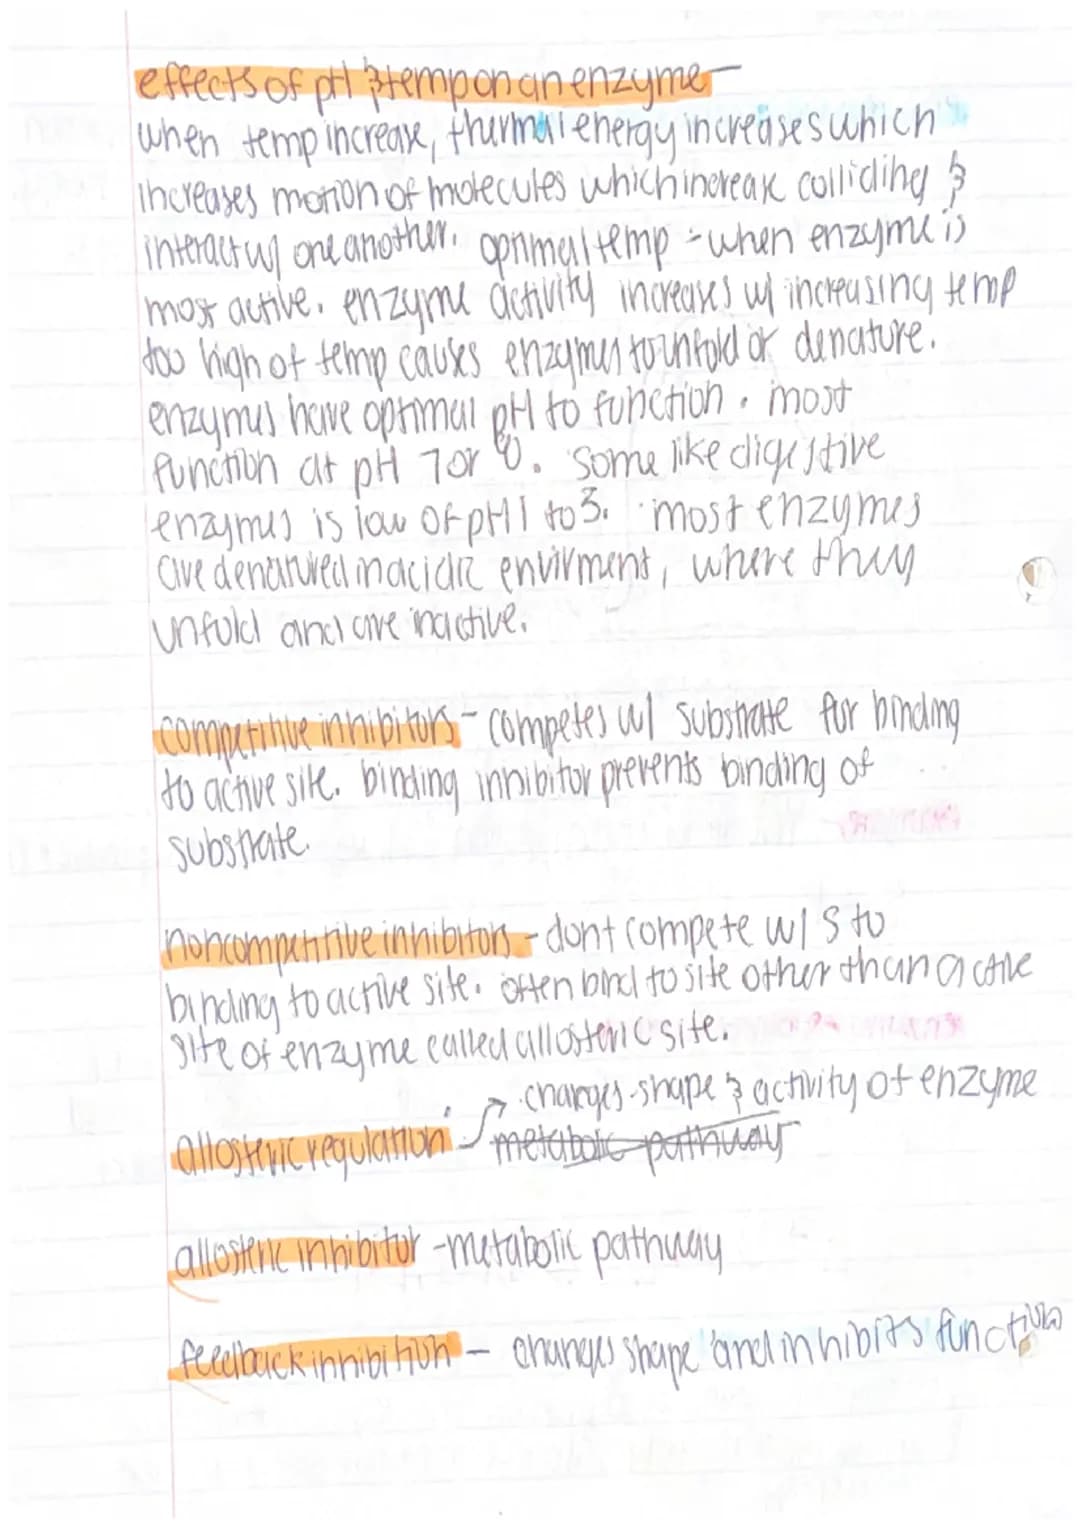 effects of pH & temp on an enzyme-
when temp increase, thurmal energy increases which
increases motion of molecules which increase colliding &
interact w/ one another. optimal temp - when enzyme is
most active. enzyme activity increases w/ increasing temp
too high of temp causes enzymes to unfold or denature.
enzymes have optimal pH to function. most
function at pH 7 or 8. some like digestive
enzymes is low of pH 1 to 3. most enzymes
are denatured in acidic envirment, where they
unfold and are inactive.
competitive inhibitors - competes w/ substrate for binding
to active site. binding inhibitor prevents binding of
substrate.
noncompetitive inhibitors - dont compete w/ S to
binding to active site. often bind to site other than active
site of enzyme called allosteric site.
→ changes shape & activity of enzyme
allosteric regulation - metabolic pathway
allosteric inhibitor - metabolic pathway
feedback inhibition - changes shape and inhibits function